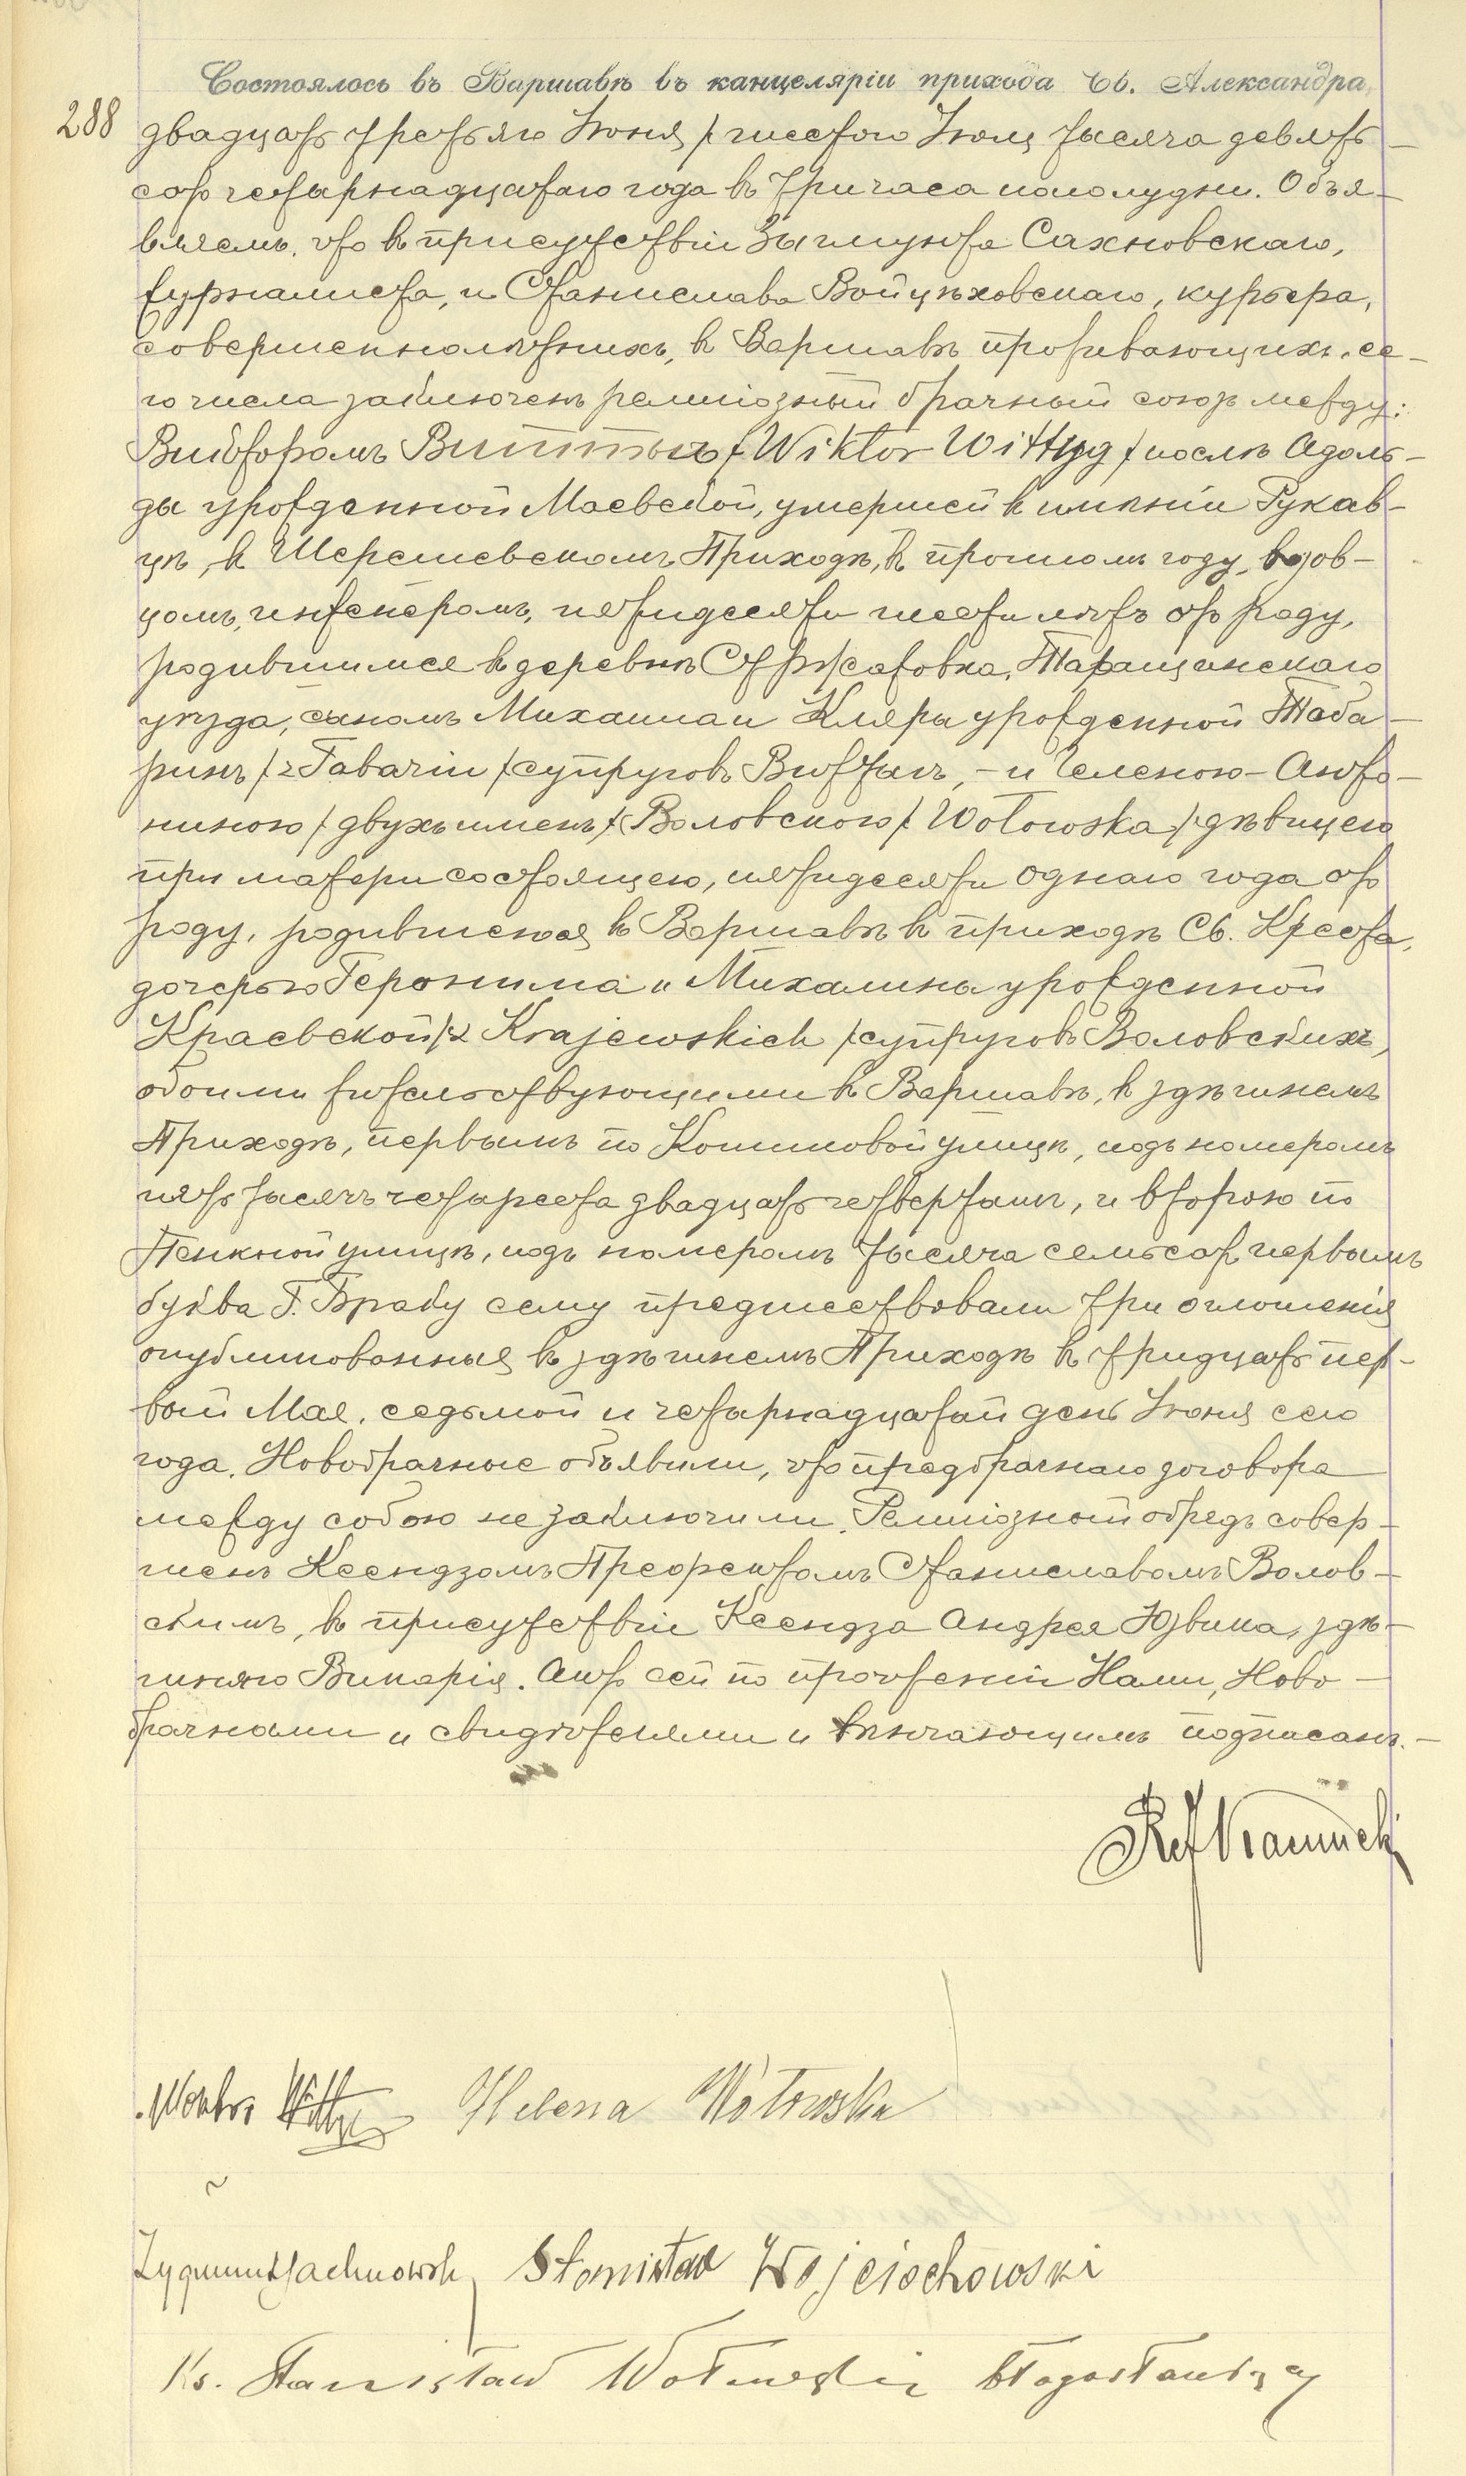 Состоялось въ Варшавѣ въ канцеляріи прихода Св. Александра,
288 двадцать третьяго Іюня / шестого Іюля тысяча девять-
сотъ четырнадцатаго года въ три часа пополудни. Объя-
вляемъ, что въ присутствіи Зыгмунта Сахновскаго,
журналиста, и Станислава Войцѣховскаго, курьера,
совершеннолѣтнихъ, въ Варшавѣ проживающихъ, се-
го числа заключенъ религіозный брачный союзъ между:
Викторомъ Виттыгъ / Wiktor Wittyg / послѣ Адоль-
ды урожденной Маевской, умершей въ имѣніи Рукав-
цѣ, въ Шерешевскомъ Приходѣ, въ прошломъ году, вдов-
цомъ, инженеромъ, пятидесяти шести лѣтъ отъ роду,
родившимся въ деревнѣ Стржатовка, Таращанскаго
уѣзда, сыномъ Михаила и Кляры урожденной Таба-
ринъ / z Tabarin / супруговъ Виттыгъ, - и Геленою-Анто-
ниною / двухъ именъ / Воловскою / Wołowska / дѣвицею
при матери состоящею, пятидесяти одного года отъ
роду, родившеюся въ Варшавѣ въ приходѣ Св. Креста,
дочерью Геронима и Михалины урожденной
Краевской / z Krajewskich / супруговъ Воловскихъ,
обоими жительствующими въ Варшавѣ, въ здѣшнемъ
Приходѣ, первымъ по Кошиковой улицѣ, подъ номеромъ
пять тысячъ четыреста двадцать четвертымъ, и второю по
Пенкной улицѣ, подъ номеромъ тысяча семьсотъ первымъ
буква Г. Браку сему предшествовали три оглошенія
опубликованныя въ здѣшнемъ Приходѣ въ тридцать пер-
вый Мая, седьмой и четырнадцатый день Іюня сего
года. Новобрачные объявили, что предбрачнаго договора
между собою не заключили. Религіозный обрядъ совер-
шенъ Ксендзомъ Префектомъ Станиславомъ Волов-
скимъ, въ присутствіи Ксендза Андрея Юзвика, здѣ-
шняго Викарія. Актъ сей по прочтеніи Нами, Ново-
брачными и свидѣтелями и вѣнчающимъ подписанъ. -
Wiktor Wittyg Helena Wołowska
Zygmunt Sachnowski Stanisław Wojciechowski
Ks. Stanisław Wołowski błogosławiący